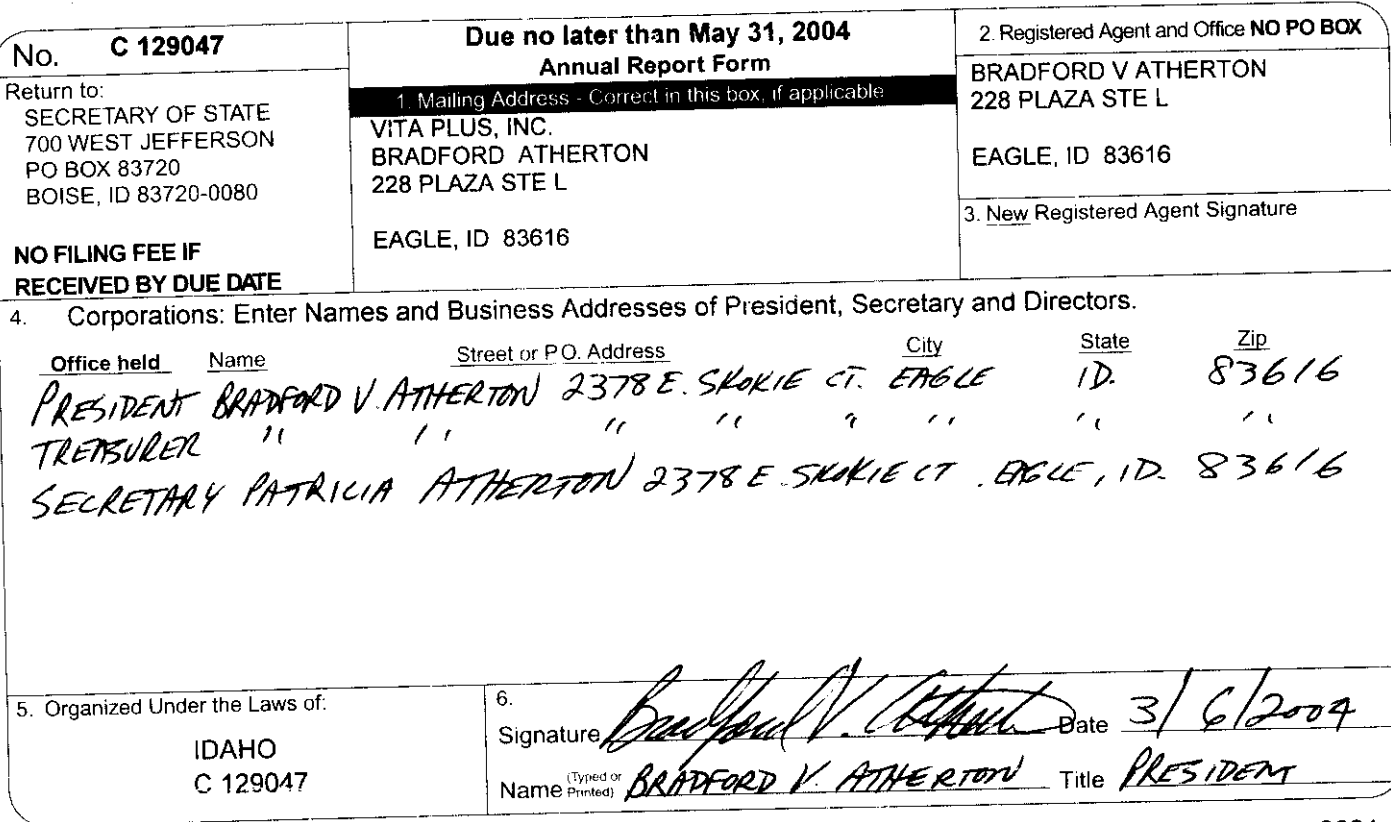 No. C 129047
Return to:
SECRETARY OF STATE
700 WEST JEFFERSON
PO BOX 83720
BOISE, ID 83720-0080
NO FILING FEE IF
RECEIVED BY DUE DATE
Due no later than May 31, 2004
Annual Report Form
1. Mailing Address - Correct in this box, if applicable
VITA PLUS, INC.
BRADFORD ATHERTON
228 PLAZA STE L
EAGLE, ID 83616
2. Registered Agent and Office NO PO BOX
BRADFORD V ATHERTON
228 PLAZA STE L
EAGLE, ID 83616
3. New Registered Agent Signature
4. Corporations: Enter Names and Business Addresses of President, Secretary and Directors.
Office held Name Street or P.O. Address City State Zip
PRESIDENT BRADFORD V. ATHERTON 2378 E. SKOKIE CT. EAGLE ID. 83616
TREASURER " " " " " " " "
SECRETARY PATRICIA ATHERTON 2378 E. SKOKIE CT. EAGLE, ID. 83616
5. Organized Under the Laws of:
IDAHO
C 129047
6.
Signature Bradford V. Atherton Date 3/6/2004
Name (Typed or Printed) BRADFORD V. ATHERTON Title PRESIDENT